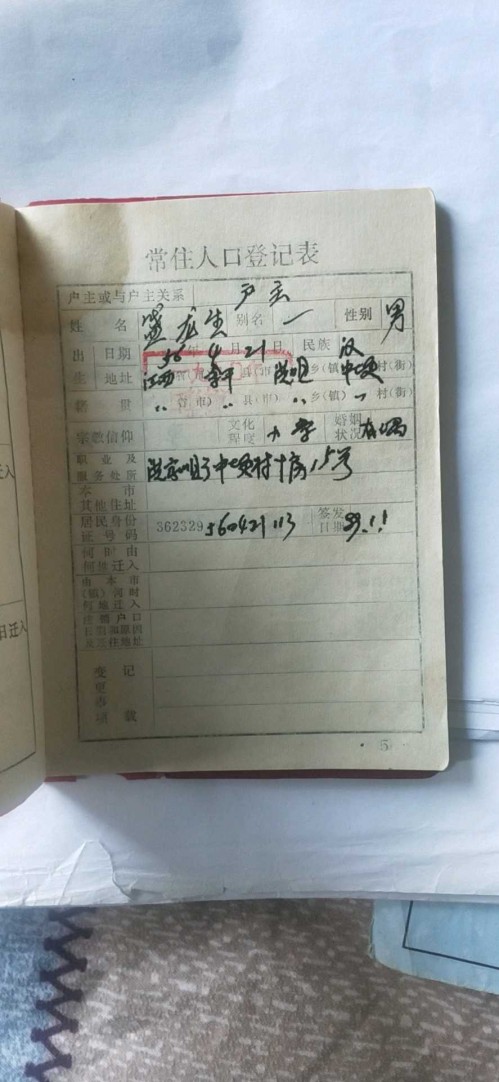 常住人口登记表
户主或与户主关系 户主
姓名 盛龙生 别名 一 性别 男
出 日期 56年4月21日 民族 汉
生 地址 江西 省(市) 余干 县(市) 乡(镇) 村(街)
籍贯 〃 省(市) 〃 县(市) 〃 乡(镇) 〃 村(街)
宗教信仰 文化程度 小学 婚姻状况
职业及
服务处所
本市
其他住址
居民身份 362329560421113 签发
证号码 日期 89.1.1
何时由
何地迁入
由本市
(镇)何时
何地迁入
注销户口
日期和原因
及迁往地址
变 记
更
事
项 载
5
日迁入